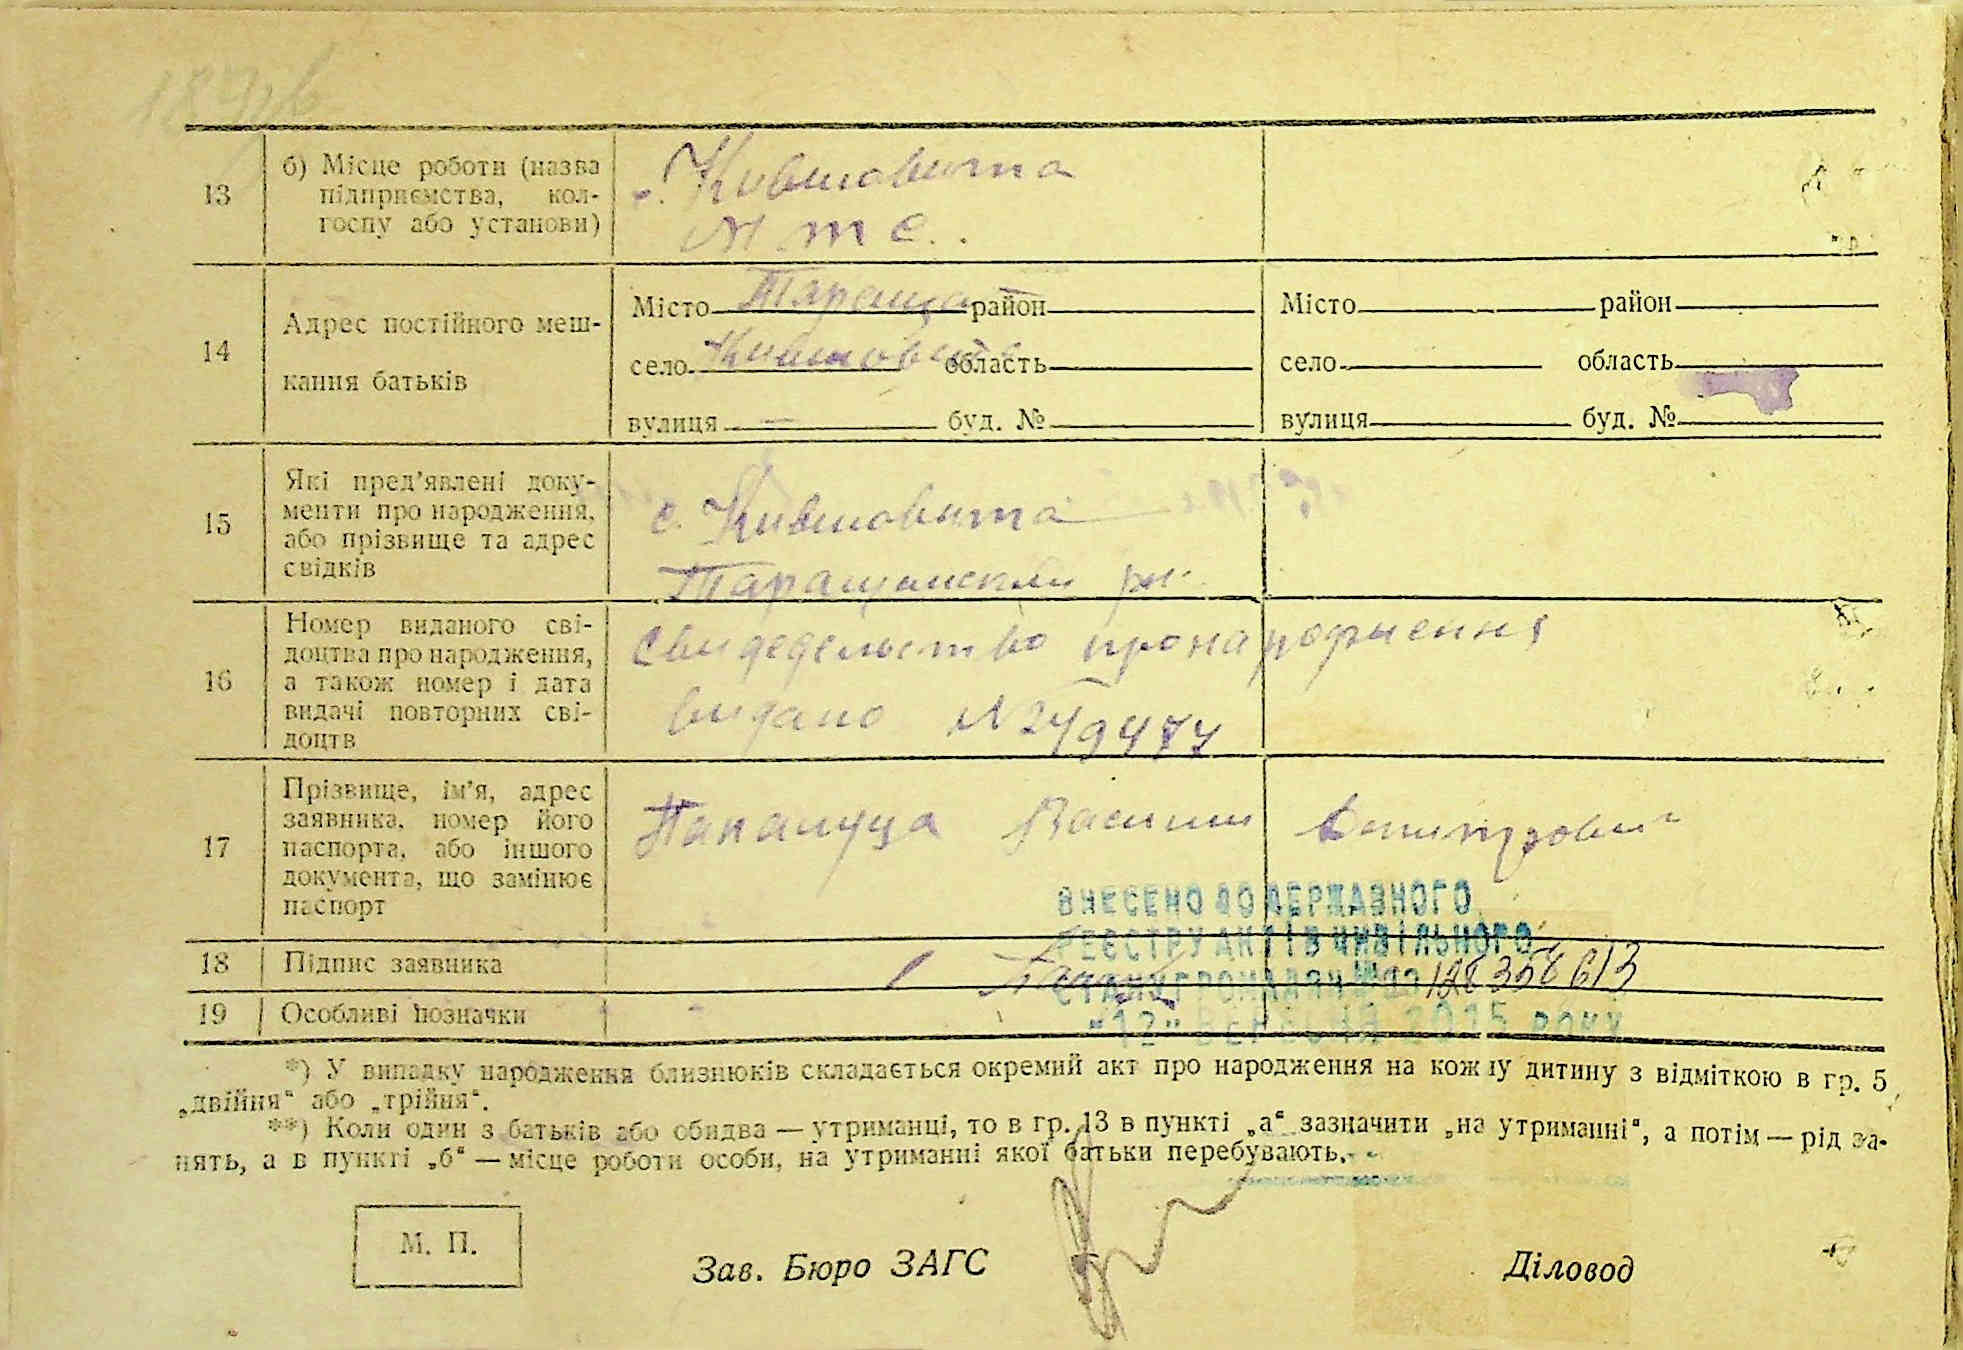 13
б) Місце роботи (назва
підприємства, кол-
госпу або установи)
с. Кившовата
М т с.
14
Адрес постійного меш-
кання батьків
Місто Тараща район
село Кившовата область
вулиця — буд. №
Місто район
село область
вулиця буд. №
15
Які пред'явлені доку-
менти про народження,
або прізвище та адрес
свідків
с. Кившовата
Таращанский рн.
16
Номер виданого сві-
доцтва про народження,
а також номер і дата
видачі повторних сві-
доцтв
Свидедельство про народження
видано №
17
Прізвище, ім'я, адрес
заявника, номер його
паспорта, або іншого
документа, що замінює
паспорт
Василий
ВНЕСЕНО ДО ДЕРЖАВНОГО
РЕЄСТРУ АКТІВ ЦИВІЛЬНОГО
СТАНУ ГРОМАДЯН
"12" ВЕРЕСНЯ 2015 РОКУ
18
Підпис заявника
19
Особливі позначки
*) У випадку народження близнюків складається окремий акт про народження на кожну дитину з відміткою в гр. 5
„двійня“ або „трійня“.
**) Коли один з батьків або обидва — утриманці, то в гр. 13 в пункті „а“ зазначити „на утриманні“, а потім — рід за-
нять, а в пункті „б“ — місце роботи особи, на утриманні якої батьки перебувають.
М. П.
Зав. Бюро ЗАГС
Діловод